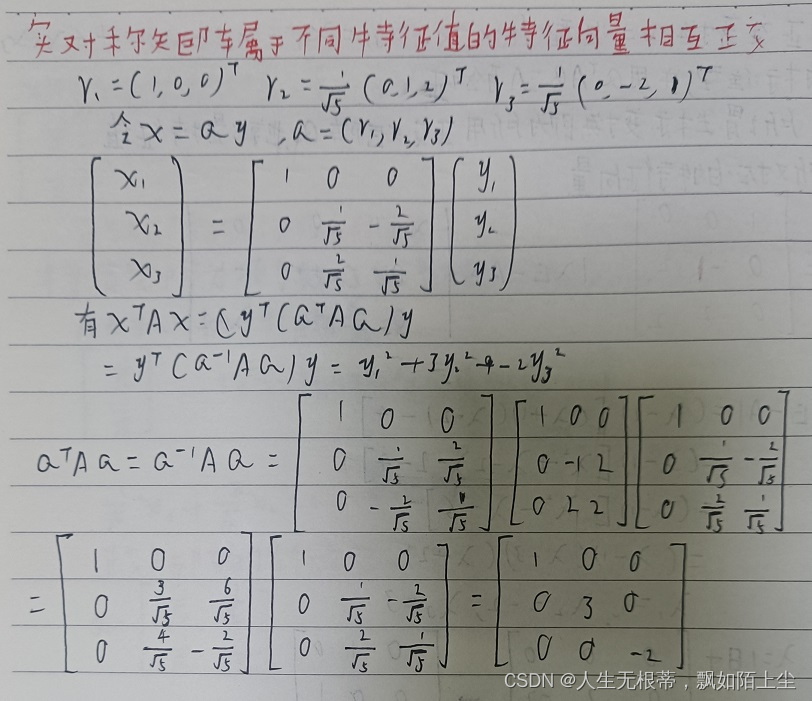 实对称矩阵属于不同特征值的特征向量相互正交
γ₁=(1,0,0)ᵀ γ₂=1/√5(0,1,2)ᵀ γ₃=1/√5(0,-2,1)ᵀ
令x=Qy,Q=(γ₁,γ₂,γ₃)
[x₁ x₂ x₃] = [1 0 0; 0 1/√5 -2/√5; 0 2/√5 1/√5] [y₁ y₂ y₃]
有xᵀAx=(yᵀ(QᵀAQ)y
=yᵀ(Q⁻¹AQ)y=y₁²+3y₂²+-2y₃²
QᵀAQ=Q⁻¹AQ= [1 0 0; 0 1/√5 2/√5; 0 -2/√5 1/√5] [1 0 0; 0 -1 2; 0 2 2] [1 0 0; 0 1/√5 -2/√5; 0 2/√5 1/√5]
= [1 0 0; 0 3/√5 6/√5; 0 4/√5 -2/√5] [1 0 0; 0 1/√5 -2/√5; 0 2/√5 1/√5] = [1 0 0; 0 3 0; 0 0 -2]
CSDN @人生无根蒂，飘如陌上尘